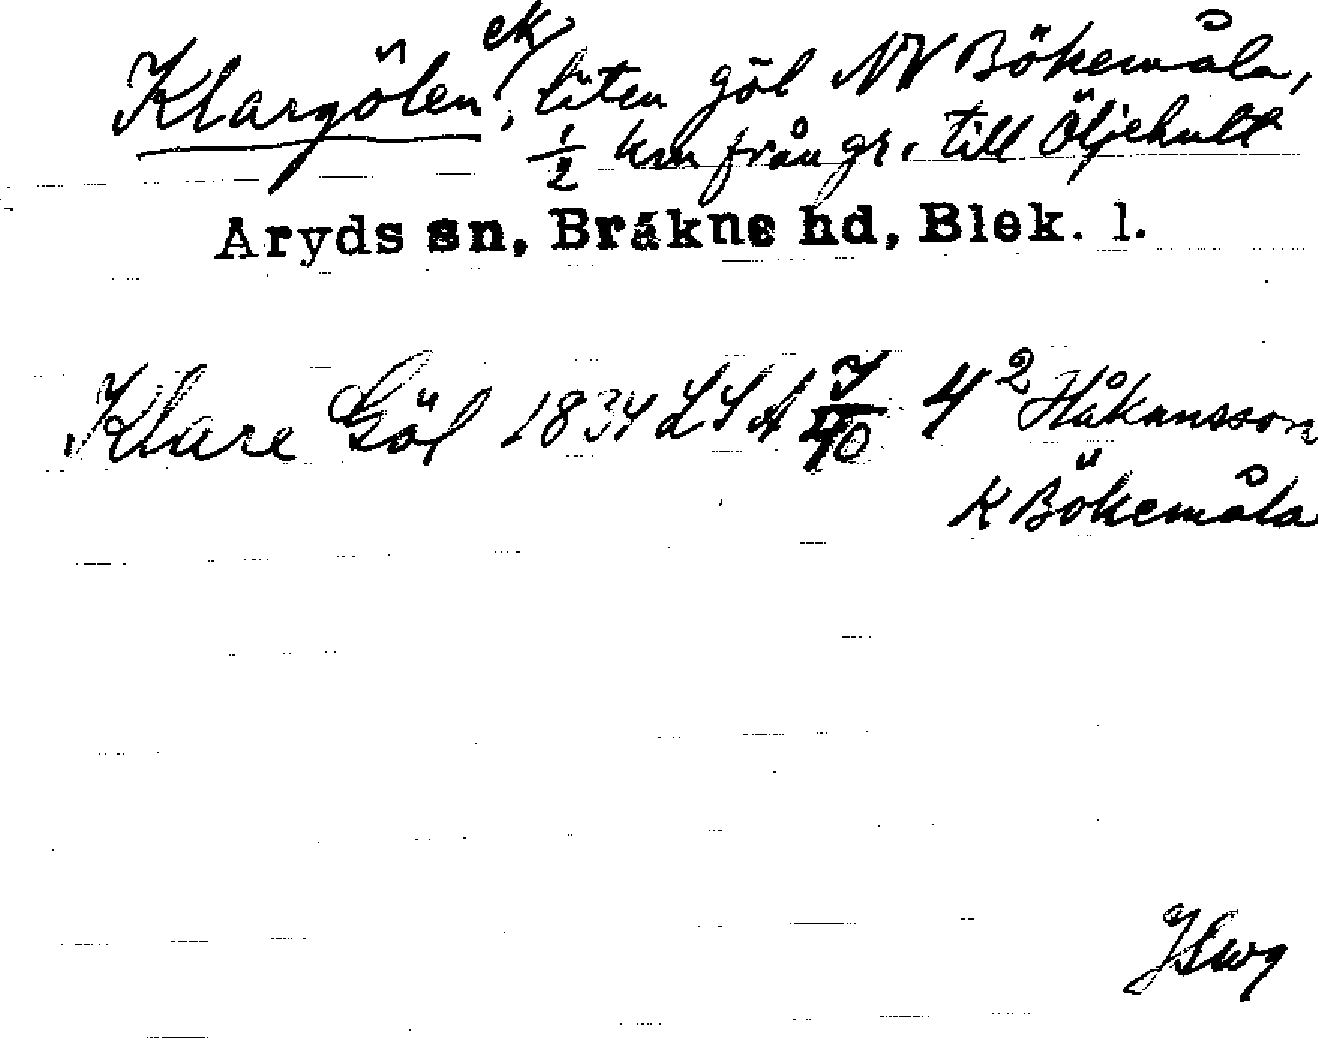 Klargölen ek, liten göl NV Bökemåla,
1/2 km från gr. till Öljehult
Aryds sn, Bräkne hd, Blek. l.
Klare Göl 1834 LSA 4² Håkansson
K Bökemåla